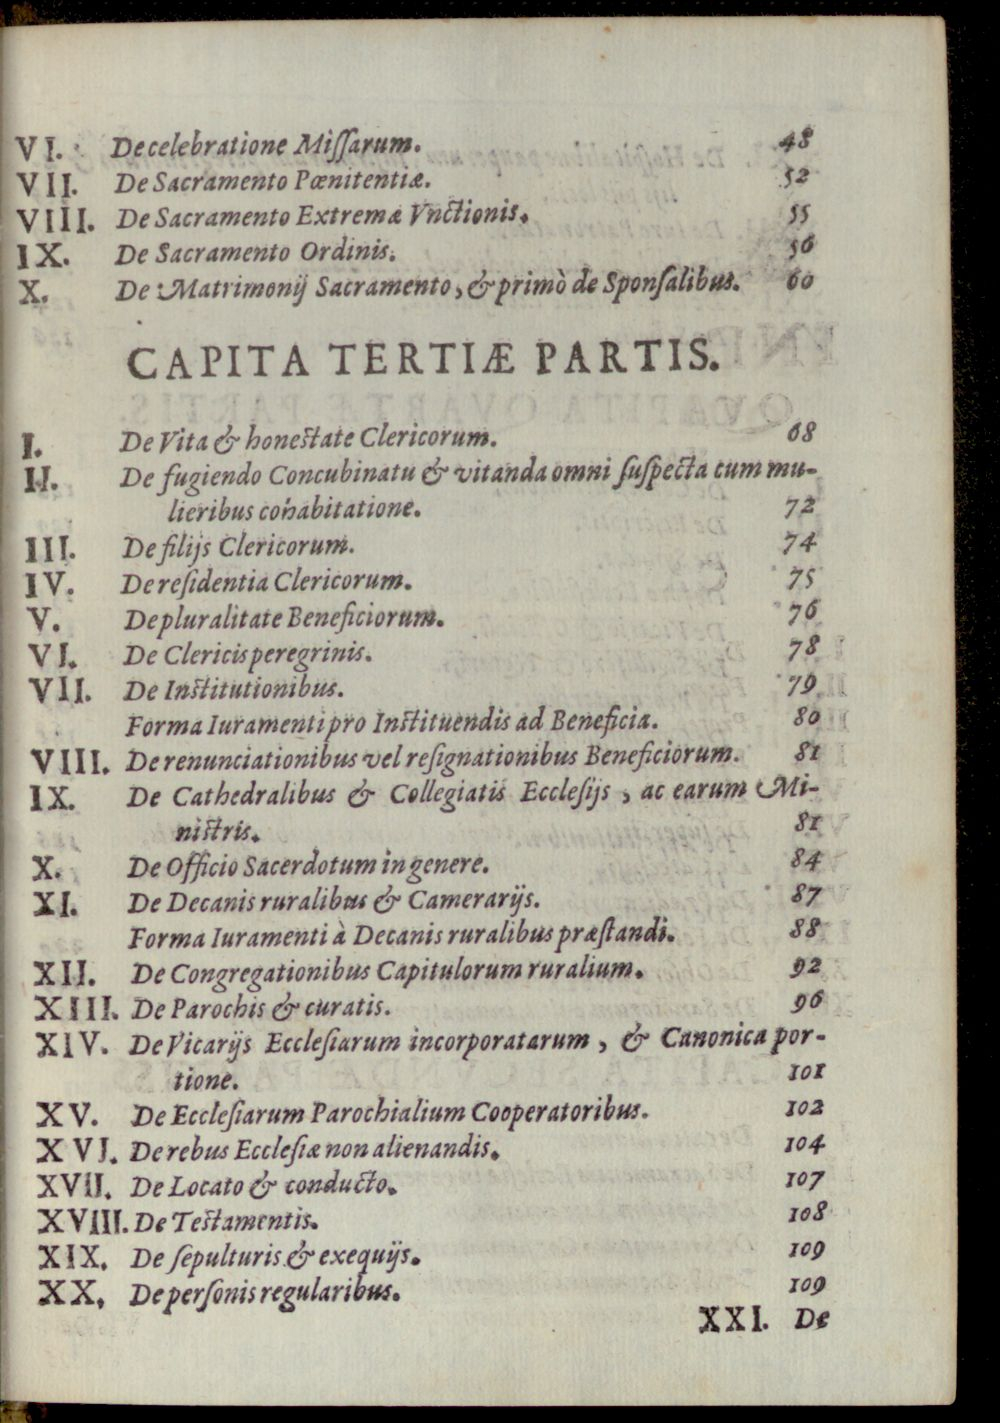 VI. De celebratione Miſſarum. 48
VII. De Sacramento Pœnitentiæ. 52
VIII. De Sacramento Extremæ Vnctionis. 55
IX. De Sacramento Ordinis. 56
X. De Matrimonij Sacramento, & primò de Sponſalibus. 60
CAPITA TERTIÆ PARTIS.
I. De Vita & honestate Clericorum. 68
II. De fugiendo Concubinatu & vitanda omni ſuſpecta cum mu-
lieribus cohabitatione. 72
III. De filijs Clericorum. 74
IV. De reſidentia Clericorum. 75
V. De pluralitate Beneficiorum. 76
VI. De Clericis peregrinis. 78
VII. De Institutionibus. 79
Forma Iuramenti pro Instituendis ad Beneficia. 80
VIII. De renunciationibus vel reſignationibus Beneficiorum. 81
IX. De Cathedralibus & Collegiatis Eccleſijs, ac earum Mi-
nistris. 81
X. De Officio Sacerdotum in genere. 84
XI. De Decanis ruralibus & Camerarijs. 87
Forma Iuramenti à Decanis ruralibus præſtandi. 88
XII. De Congregationibus Capitulorum ruralium. 92
XIII. De Parochis & curatis. 96
XIV. De Vicarijs Eccleſiarum incorporatarum, & Canonica por-
tione. 101
XV. De Eccleſiarum Parochialium Cooperatoribus. 102
XVI. De rebus Eccleſiæ non alienandis. 104
XVII. De Locato & conducto. 107
XVIII. De Testamentis. 108
XIX. De ſepulturis & exequijs. 109
XX. De perſonis regularibus. 109
XXI. De